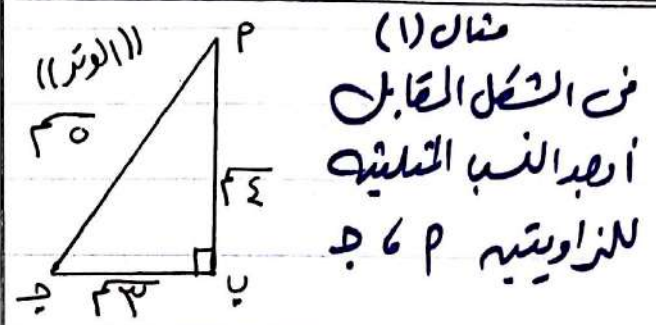 مثال (١)
فى الشكل المقابل
أوجد النسب المثلثية
للزاويتين م ، جـ
((الوتر))
م
٥ سم
٤ سم
٣ سم
ب
جـ